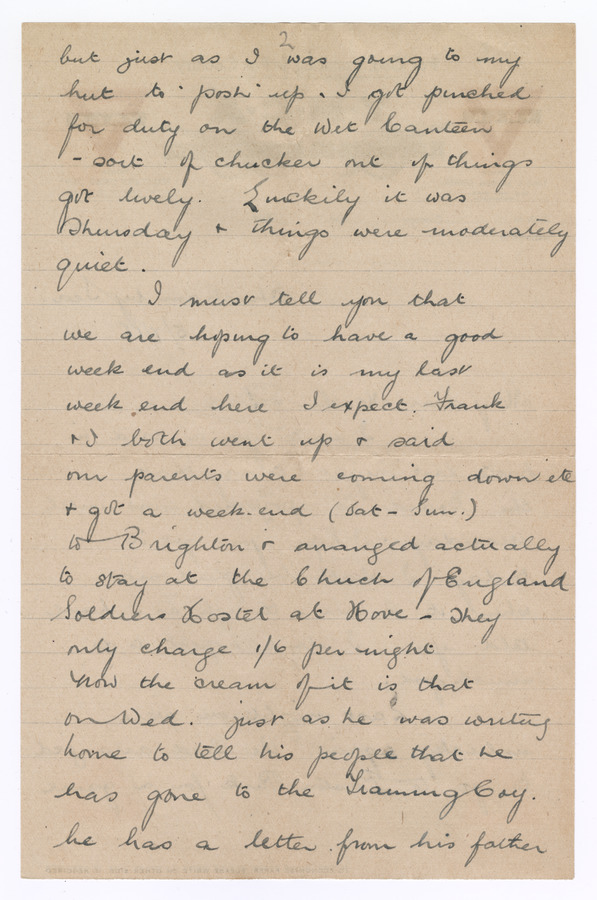 2
but just as I was going to my
hut to "posh" up. I got pinched
for duty on the Wet Canteen
- sort of chucker out if things
got lively. Luckily it was
Thursday + things were moderately
quiet.
I must tell you that
we are hoping to have a good
week end as it is my last
week end here I expect. Frank
+ I both went up + said
our parents were coming down etc
+ got a week-end (Sat - Sun.)
to Brighton + arranged actually
to stay at the Church of England
Soldiers Hostel at Hove - They
only charge 1/6 per night
Now the cream of it is that
on Wed. just as he was writing
home to tell his people that he
has gone to the Training Coy.
he has a letter from his father